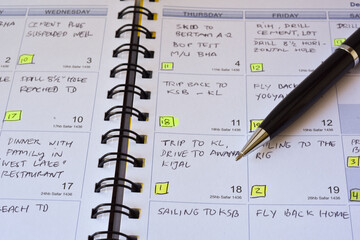 WEDNESDAY
THURSDAY
FRIDAY
CEMENT PLUG
SUSPENDED WELL
2
SKID TO
BERTAM A-Q
BOP TEST
M/U BHA
11
4
RIH, DRILL
CEMENT, LOT
DRILL 8½ HORI-
ZONTAL HOLE
12
10
DRILL 8½ HOLE
REACHED TD
17
10
TRIP BACK TO
KSB - KL
18
11
FLY BACK
YOGYA
12
DINNER WITH
FAMILY IN
"WEST LAKE"
RESTAURANT
17
TRIP TO KL,
DRIVE TO AWANA
KIJAL
1
18
SAILING TO THE
RIG
2
19
REACH TD
SAILING TO KSB
FLY BACK HOME